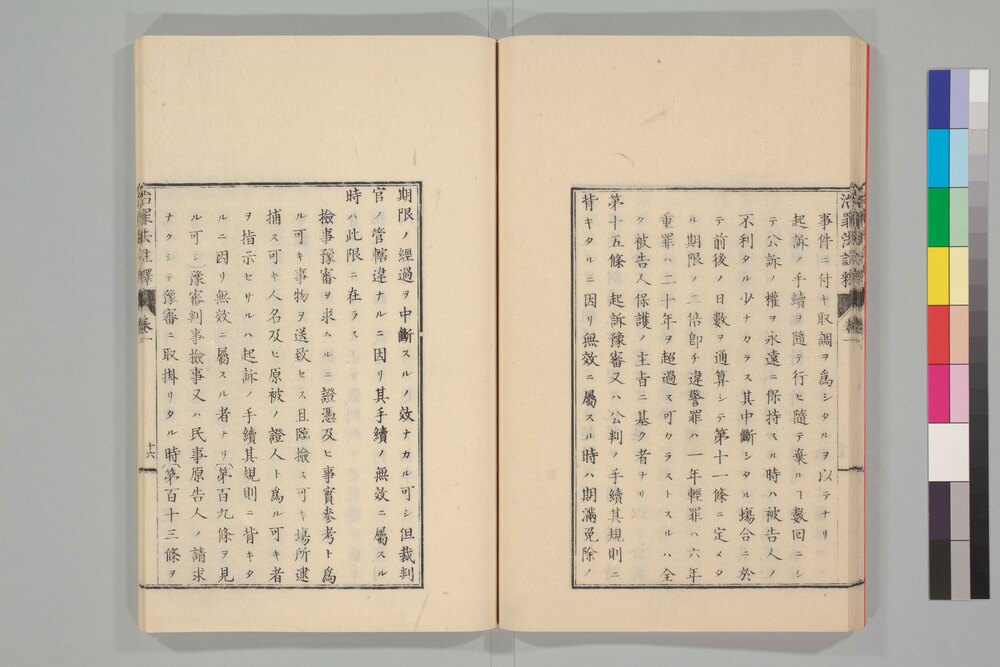 事件ニ付キ取調ヲ爲シタルヲ以テナリ
起訴ノ手續ヲ隨テ行ヒ隨テ棄ルヿ數回ニシ
テ公訴ノ權ヲ永遠ニ保持スル時ハ被告人ノ
不利タル少ナカラス其中斷シタル塲合ニ於
テ前後ノ日數ヲ通算シテ第十一條ニ定メタ
ル期限ノ二倍卽チ違警罪ハ一年輕罪ハ六年
重罪ハ二十年ヲ超過ス可カラストスルハ全
ク被告人保護ノ主旨ニ基ク者ナリ
第十五條 起訴豫審又ハ公判ノ手續其規則ニ
背キタルニ因リ無效ニ屬スル時ハ期滿免除ノ
期限ノ經過ヲ中斷スルノ效ナカル可シ但裁判
官ノ管轄違ナルニ因リ其手續ノ無效ニ屬スル
時ハ此限ニ在ラス
檢事豫審ヲ求ムルニ證憑及ヒ事實參考ト爲
ル可キ事物ヲ送致ヒス且臨檢ス可キ塲所逮
捕ス可キ人名及ヒ原被ノ證人ト爲ル可キ者
ヲ指示セサルハ起訴ノ手續其規則ニ背キタ
ルニ因リ無效ニ屬スル者ナリ(第百九條ヲ見
ル可シ)豫審判事檢事又ハ民事原告人ノ請求
ナクシテ豫審ニ取掛リタル時(第百十三條ヲ
治罪法註釋 卷一 十六